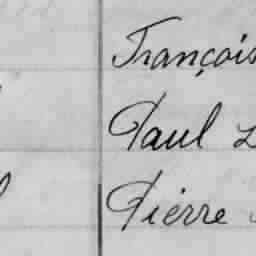 François
Paul
Pierre